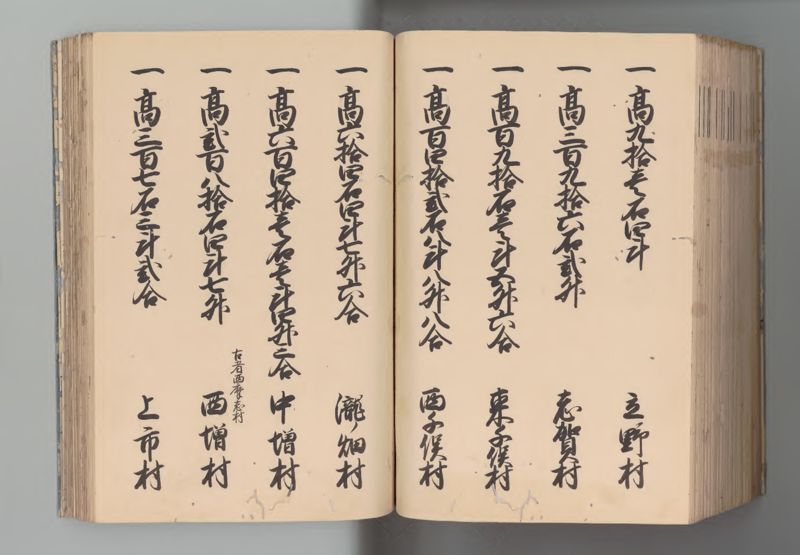 一高九拾壱石四斗 立野村
一高三百九拾六石弐升 志賀村
一高百九拾石壱斗五升六合 東千俣村
一高百四拾弐石八斗八升八合 西千俣村
一高六拾四石四斗七升六合 瀧ノ畑村
一高六百四拾壱石壱斗四升二合 中増村
古者西摩志村
一高弐百八拾石四斗七升 西増村
一高三百七石三斗弐合 上市村